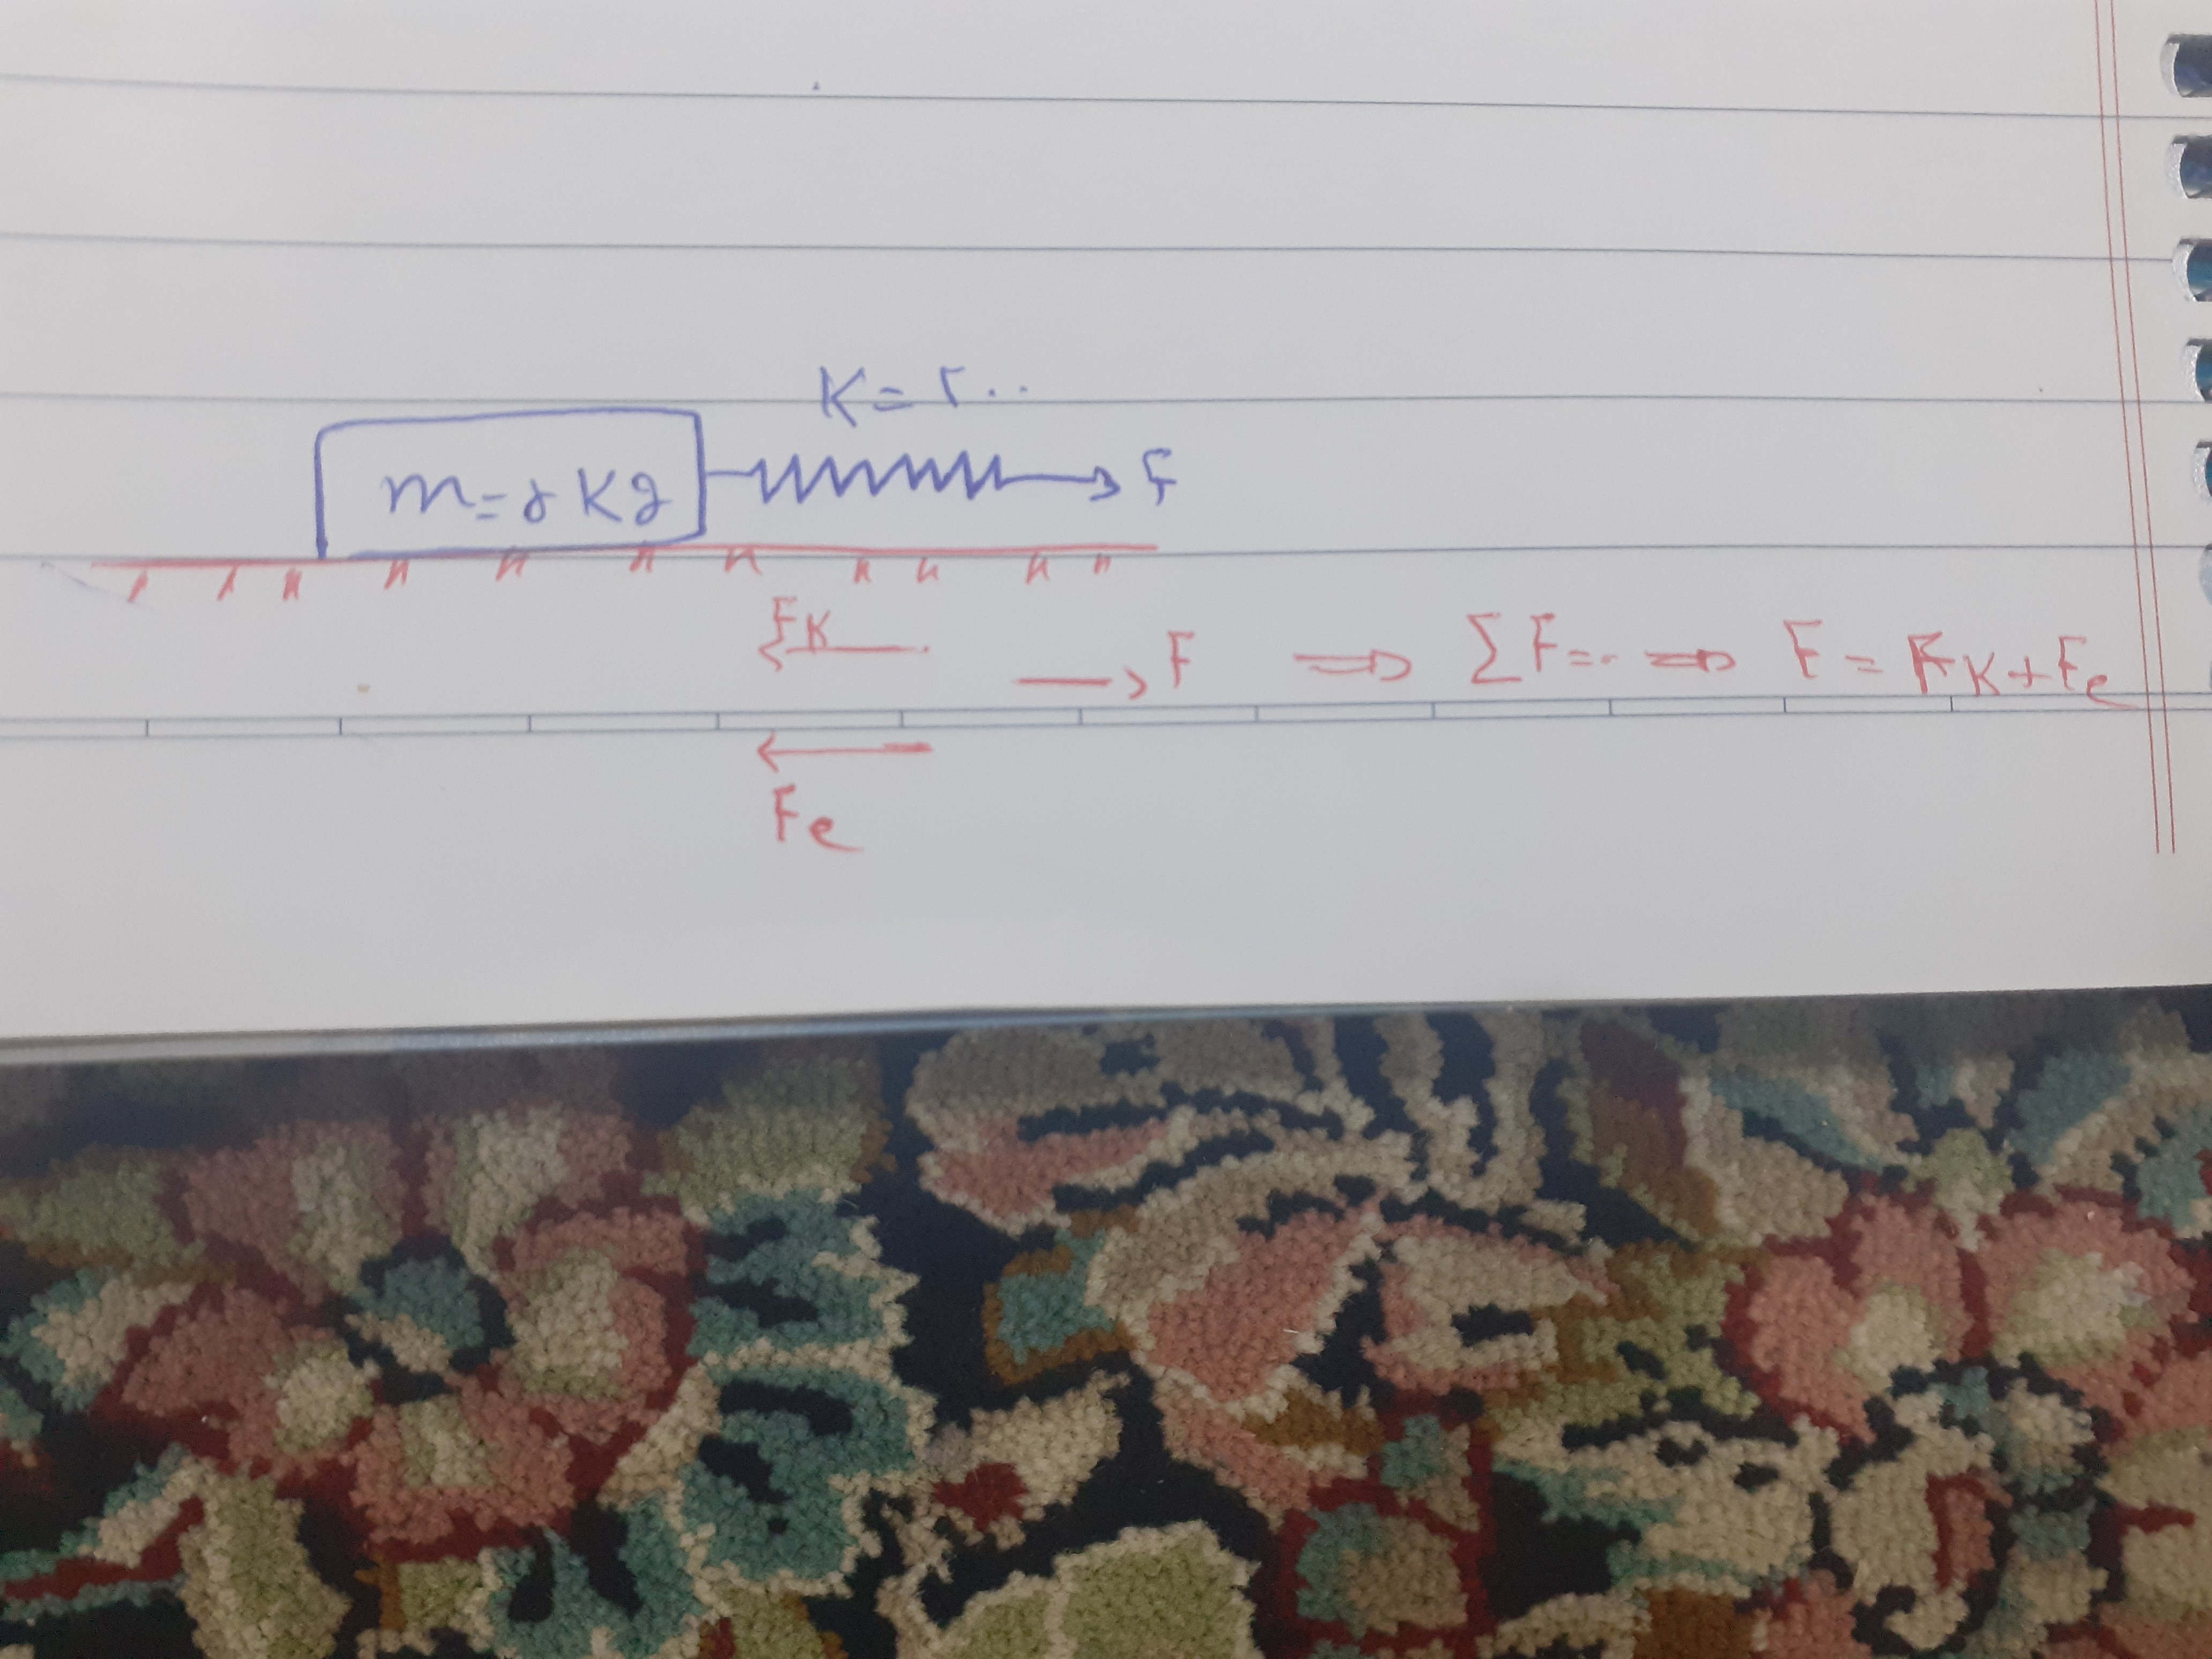 K = ۲۰۰
m = ۵ Kg
F
FK
F ⇒ ΣF = ۰ ⇒ F = FK + Fe
Fe